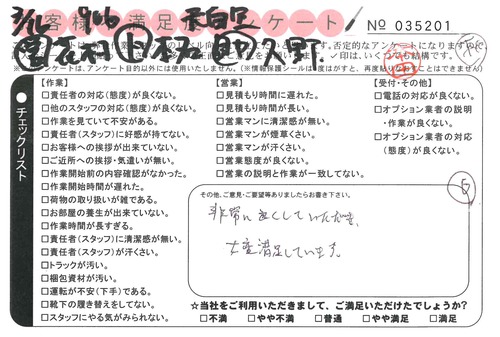 3/16 906
お客様 満足 アンケート
No 035201
チェックリスト
【作業】
□責任者の対応(態度)が良くない。
□他のスタッフの対応(態度)が良くない。
□作業を見ていて不安がある。
□責任者(スタッフ)に好感が持てない。
□お客様への挨拶が出来ていない。
□ご近所への挨拶・気遣いが無い。
□作業開始前の内容確認がなかった。
□作業開始時間が遅れた。
□荷物の取り扱いが雑である。
□お部屋の養生が出来ていない。
□作業時間が長すぎる。
□責任者(スタッフ)に清潔感が無い。
□責任者(スタッフ)が汗くさい。
□トラックが汚い。
□梱包資材が汚い。
□運転が不安(下手)である。
□靴下の履き替えをしてない。
□スタッフにやる気がみられない。
【営業】
□見積もり時間に遅れた。
□見積もり時間が長い。
□営業マンに清潔感が無い。
□営業マンが煙草くさい。
□営業マンが汗くさい。
□営業態度が良くない。
□営業の説明と作業が一致してない。
【受付・その他】
□電話の対応が良くない。
□オプション業者の説明
・作業が良くない。
□オプション業者の対応
(態度)が良くない。
その他、ご意見・ご要望等ありましたらお書き下さい。
非常に良くしていただき、
大変満足しています。
☆当社をご利用いただきまして、ご満足いただけたでしょうか?
□不満 □やや不満 □普通 □やや満足 □満足